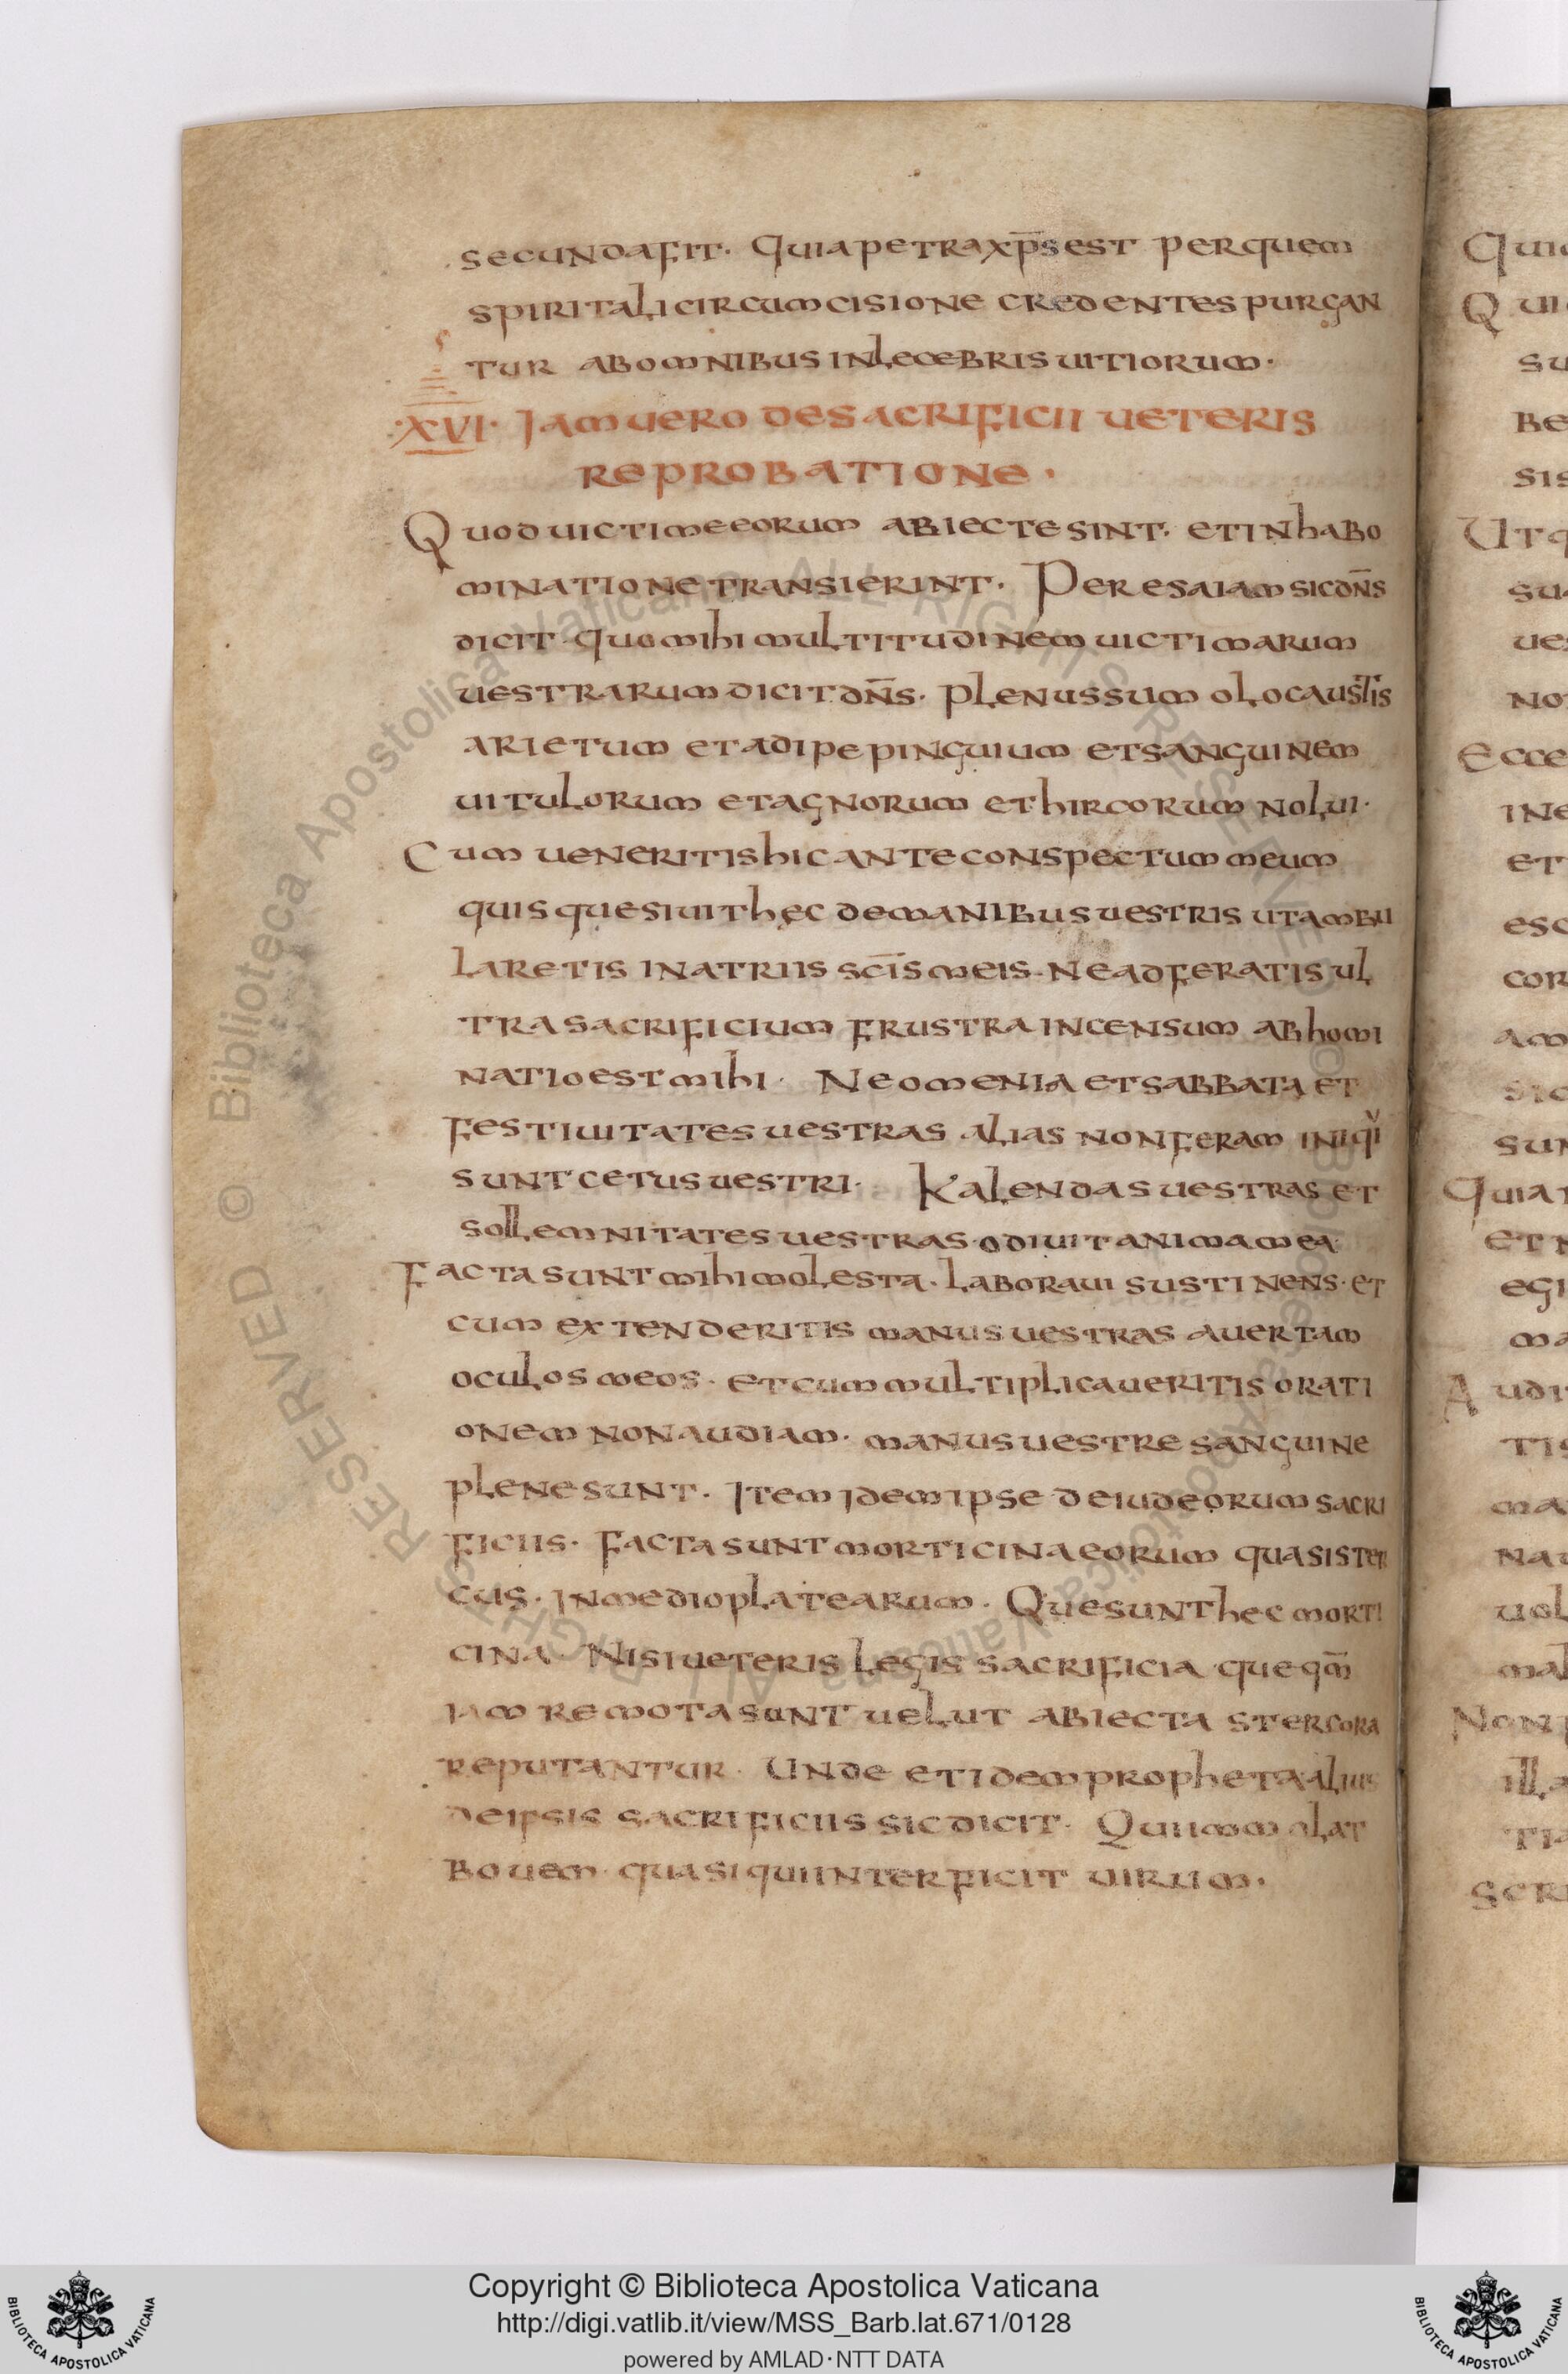 secunda fit. Quia petra xp̅s est per quem
spiritali circumcisione credentes purgan
tur ab omnibus inlecebris uitiorum.
.XVI. Iam uero de sacrificii ueteris
reprobatione.
Quod uictime eorum abiecte sint. et in habo
minatione transierint. Per esaiam sic dn̅s
dicit quo mihi multitudinem uictimarum
uestrarum dicit dn̅s. plenus sum olocaustis
arietum et adipe pinguium et sanguinem
uitulorum et agnorum et hircorum nolui.
Cum ueneritis hic ante conspectum meum
quis quesiuit hęc de manibus uestris ut ambu
laretis in atriis sci̅s meis. Ne adferatis ul
tra sacrificium frustra incensum abhomi
natio est mihi. Neomenia et sabbata et
festiuitates uestras alias non feram iniqi
sunt cetus uestri. Kalendas uestras et
sollemnitates uestras odiuit anima mea
Facta sunt mihi molesta. laboraui sustinens. et
cum extenderitis manus uestras auertam
oculos meos. et cum multiplicaueritis orati
onem non audiam. manus uestre sanguine
plene sunt. Item idem ipse de iudeorum sacri
ficiis. facta sunt morticina eorum quasi ster
cus. in medio platearum. Que sunt hec morti
cina. Nisi ueteris legis sacrificia que qm̅
iam remota sunt uelut abiecta stercora
reputantur. Unde et idem propheta alius
de ipsis sacrificiis sic dicit. Qui immolat
bouem quasi qui interficit uirum.
Qui
Q ui
su
be
sis
Ut q
su
ue
no
Ecce
ine
et
esc
cor
am
sic
sun
Quia
et n
egi
ma
Audi
tis
ma
nau
uol
mal
Non
illa
tia
scri
© Biblioteca Apostolica Vaticana ALL RIGHTS RESERVED
© Biblioteca Apostolica Vaticana ALL RIGHTS RESERVED
Copyright © Biblioteca Apostolica Vaticana
http://digi.vatlib.it/view/MSS_Barb.lat.671/0128
powered by AMLAD·NTT DATA
BIBLIOTECA APOSTOLICA VATICANA
BIBLIOTECA APOSTOLICA VATICANA